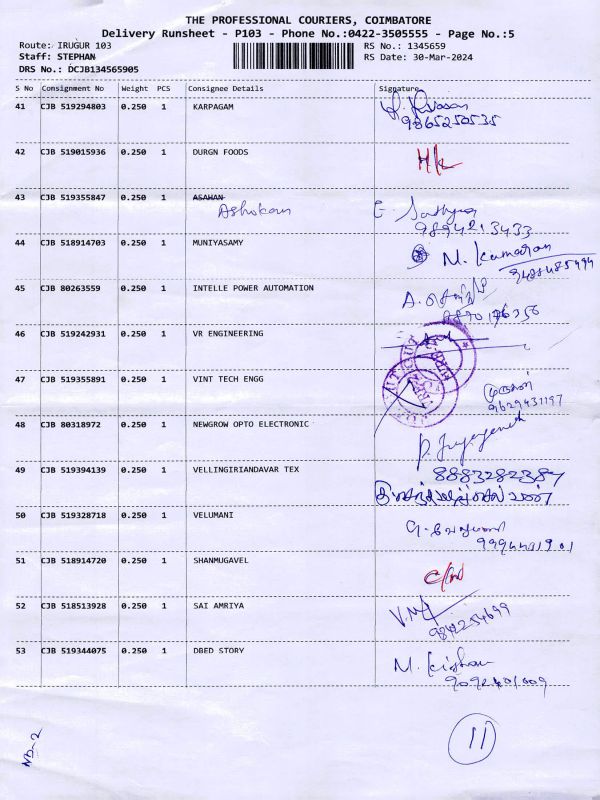 THE PROFESSIONAL COURIERS, COIMBATORE
Delivery Runsheet - P103 - Phone No.:0422-3505555 - Page No.:5
Route: IRUGUR 103
RS No.: 1345659
Staff: STEPHAN
RS Date: 30-Mar-2024
DRS No.: DCJB134565905
S No Consignment No Weight PCS Consignee Details Signature
41 CJB 519294803 0.250 1 KARPAGAM
9865250535
42 CJB 519015936 0.250 1 DURGN FOODS H/L
43 CJB 519355847 0.250 1 ASAHAN
Ashokan
9894213433
44 CJB 518914703 0.250 1 MUNIYASAMY M. Kumaran
9484485494
45 CJB 80263559 0.250 1 INTELLE POWER AUTOMATION
46 CJB 519242931 0.250 1 VR ENGINEERING
47 CJB 519355891 0.250 1 VINT TECH ENGG முருகன்
9629431197
48 CJB 80318972 0.250 1 NEWGROW OPTO ELECTRONIC
49 CJB 519394139 0.250 1 VELLINGIRIANDAVAR TEX 8883282387
50 CJB 519328718 0.250 1 VELUMANI
51 CJB 518914720 0.250 1 SHANMUGAVEL
52 CJB 518513928 0.250 1 SAI AMRIYA
9842254699
53 CJB 519344075 0.250 1 DBED STORY M. Kishan
9092401009
ND-2
11